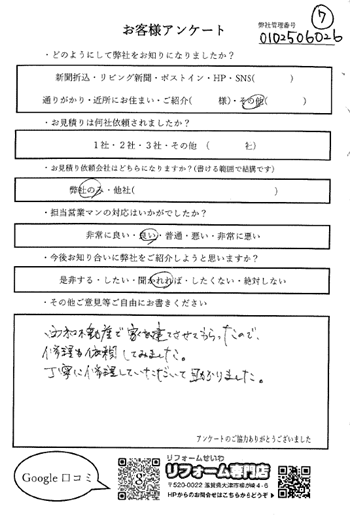 お客様アンケート
弊社管理番号 ⑦
0102506026
・どのようにして弊社をお知りになりましたか？
新聞折込・リビング新聞・ポストイン・HP・SNS( )
通りがかり・近所にお住まい・ご紹介( 様)・その他( )
・お見積りは何社依頼されましたか？
1社・2社・3社・その他 ( 社)
・お見積り依頼会社はどちらになりますか？(書ける範囲で結構です)
弊社のみ・他社( )
・担当営業マンの対応はいかがでしたか？
非常に良い・良い・普通・悪い・非常に悪い
・今後お知り合いに弊社をご紹介しようと思いますか？
是非する・したい・聞かれれば・したくない・絶対しない
・その他ご意見等ご自由にお書きください
不動産で家を建てさせてもらったので、
修理も依頼してみました。
丁寧に修理していただいて助かりました。
アンケートのご協力ありがとうございました
Google 口コミ
リフォームせいわ
リフォーム専門店
〒520-0022 滋賀県大津市柳が崎4-6
HPからのお問合せはこちらからどうぞ